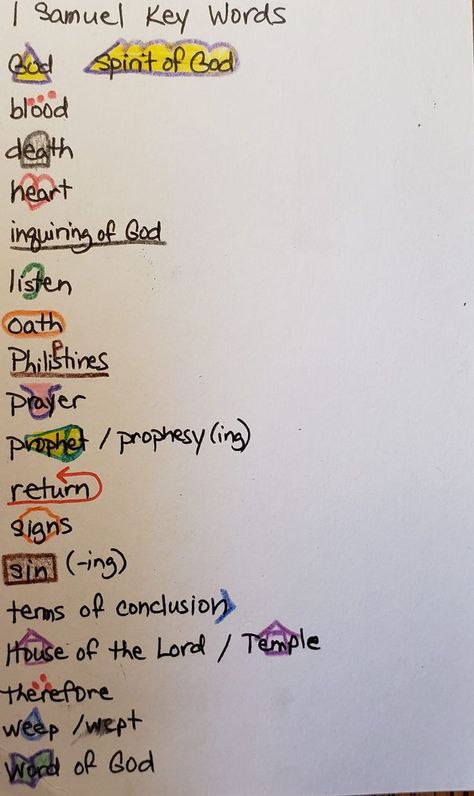 1 Samuel Key Words
God Spirit of God
blood
death
heart
inquiring of God
listen
oath
Philistines
P
prayer
prophet / prophesy (ing)
return
signs
sin (-ing)
terms of conclusion
House of the Lord / Temple
therefore
weep / wept
Word of God